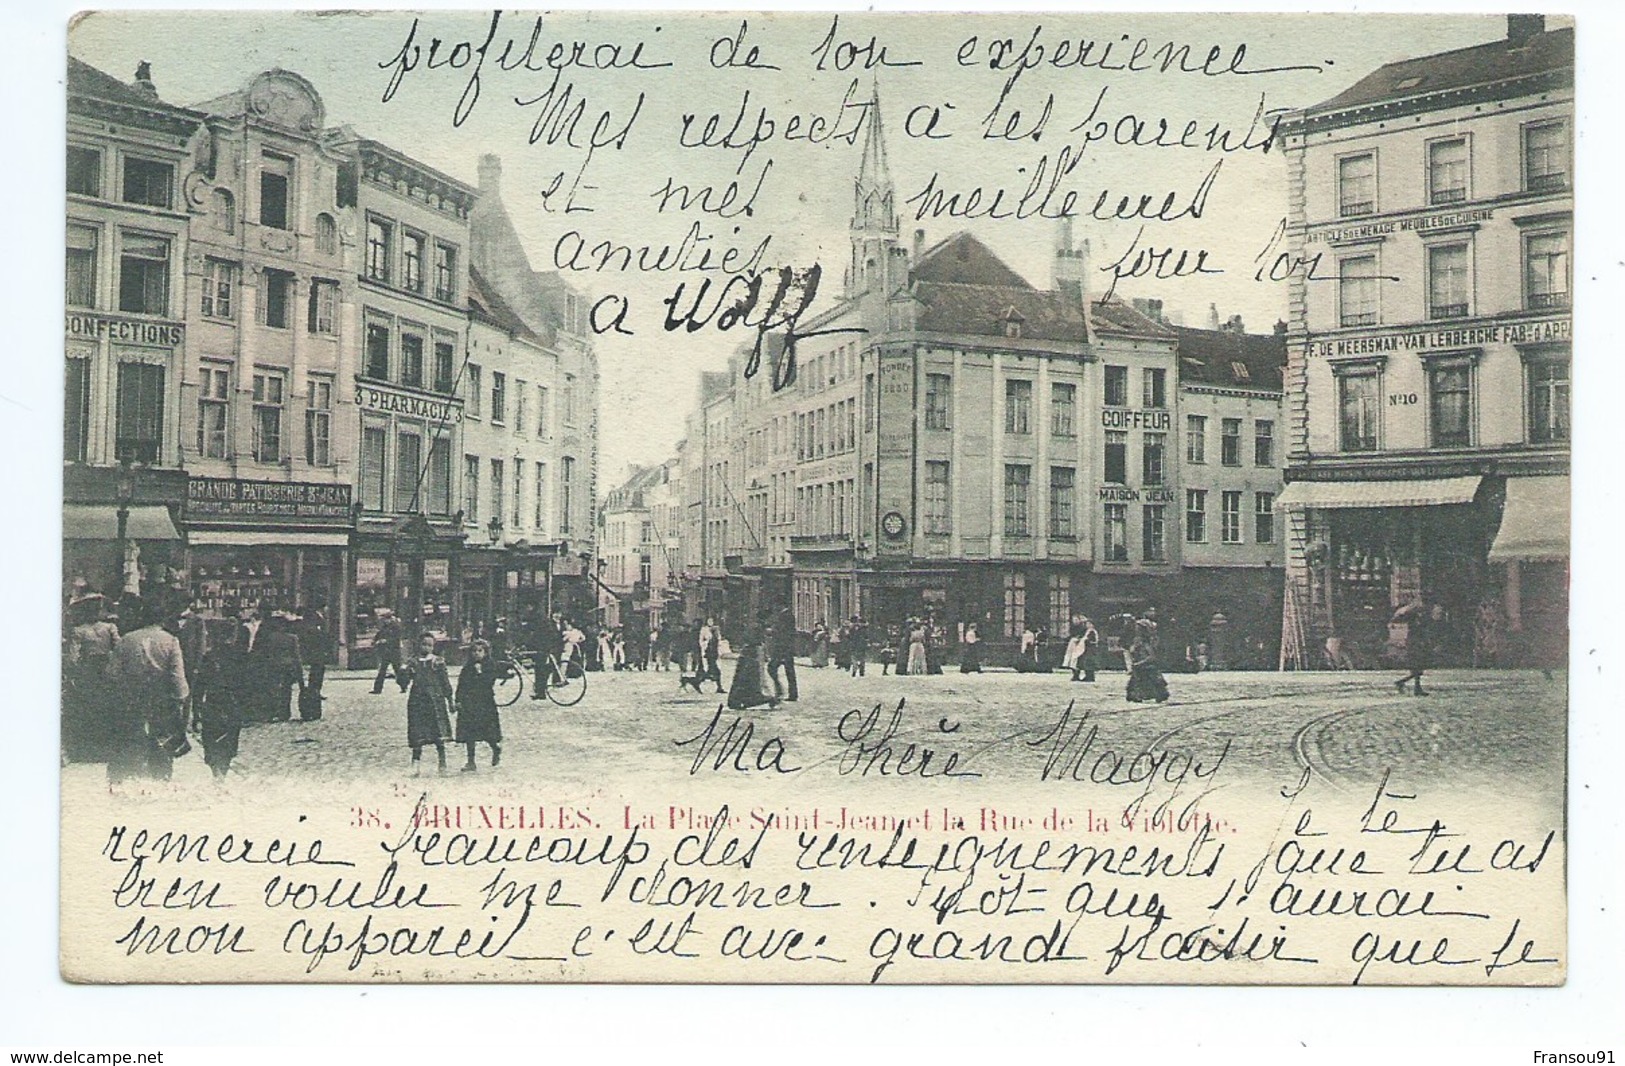 profiterai de ton experience.
Mes respects à tes parents
et mes meilleures
amitiés pour toi
a Wolff
CONFECTIONS
3 PHARMACIE 3
GRANDE PATISSERIE St JEAN
FONDÉE
COIFFEUR
MAISON JEAN
ARTICLES DE MENAGE MEUBLES DE CUISINE
F. DE MEERSMAN-VAN LERBERGHE FAB- d'APP
No 10
Ma Chère Maggy
38. BRUXELLES. La Place Saint-Jean et la Rue de la Violette.
Je te
remercie beaucoup des renseignements que tu as
bien voulu me donner. Sitôt que j'aurai
mon appareil c'est avec grand plaisir que je
www.delcampe.net
Fransou91